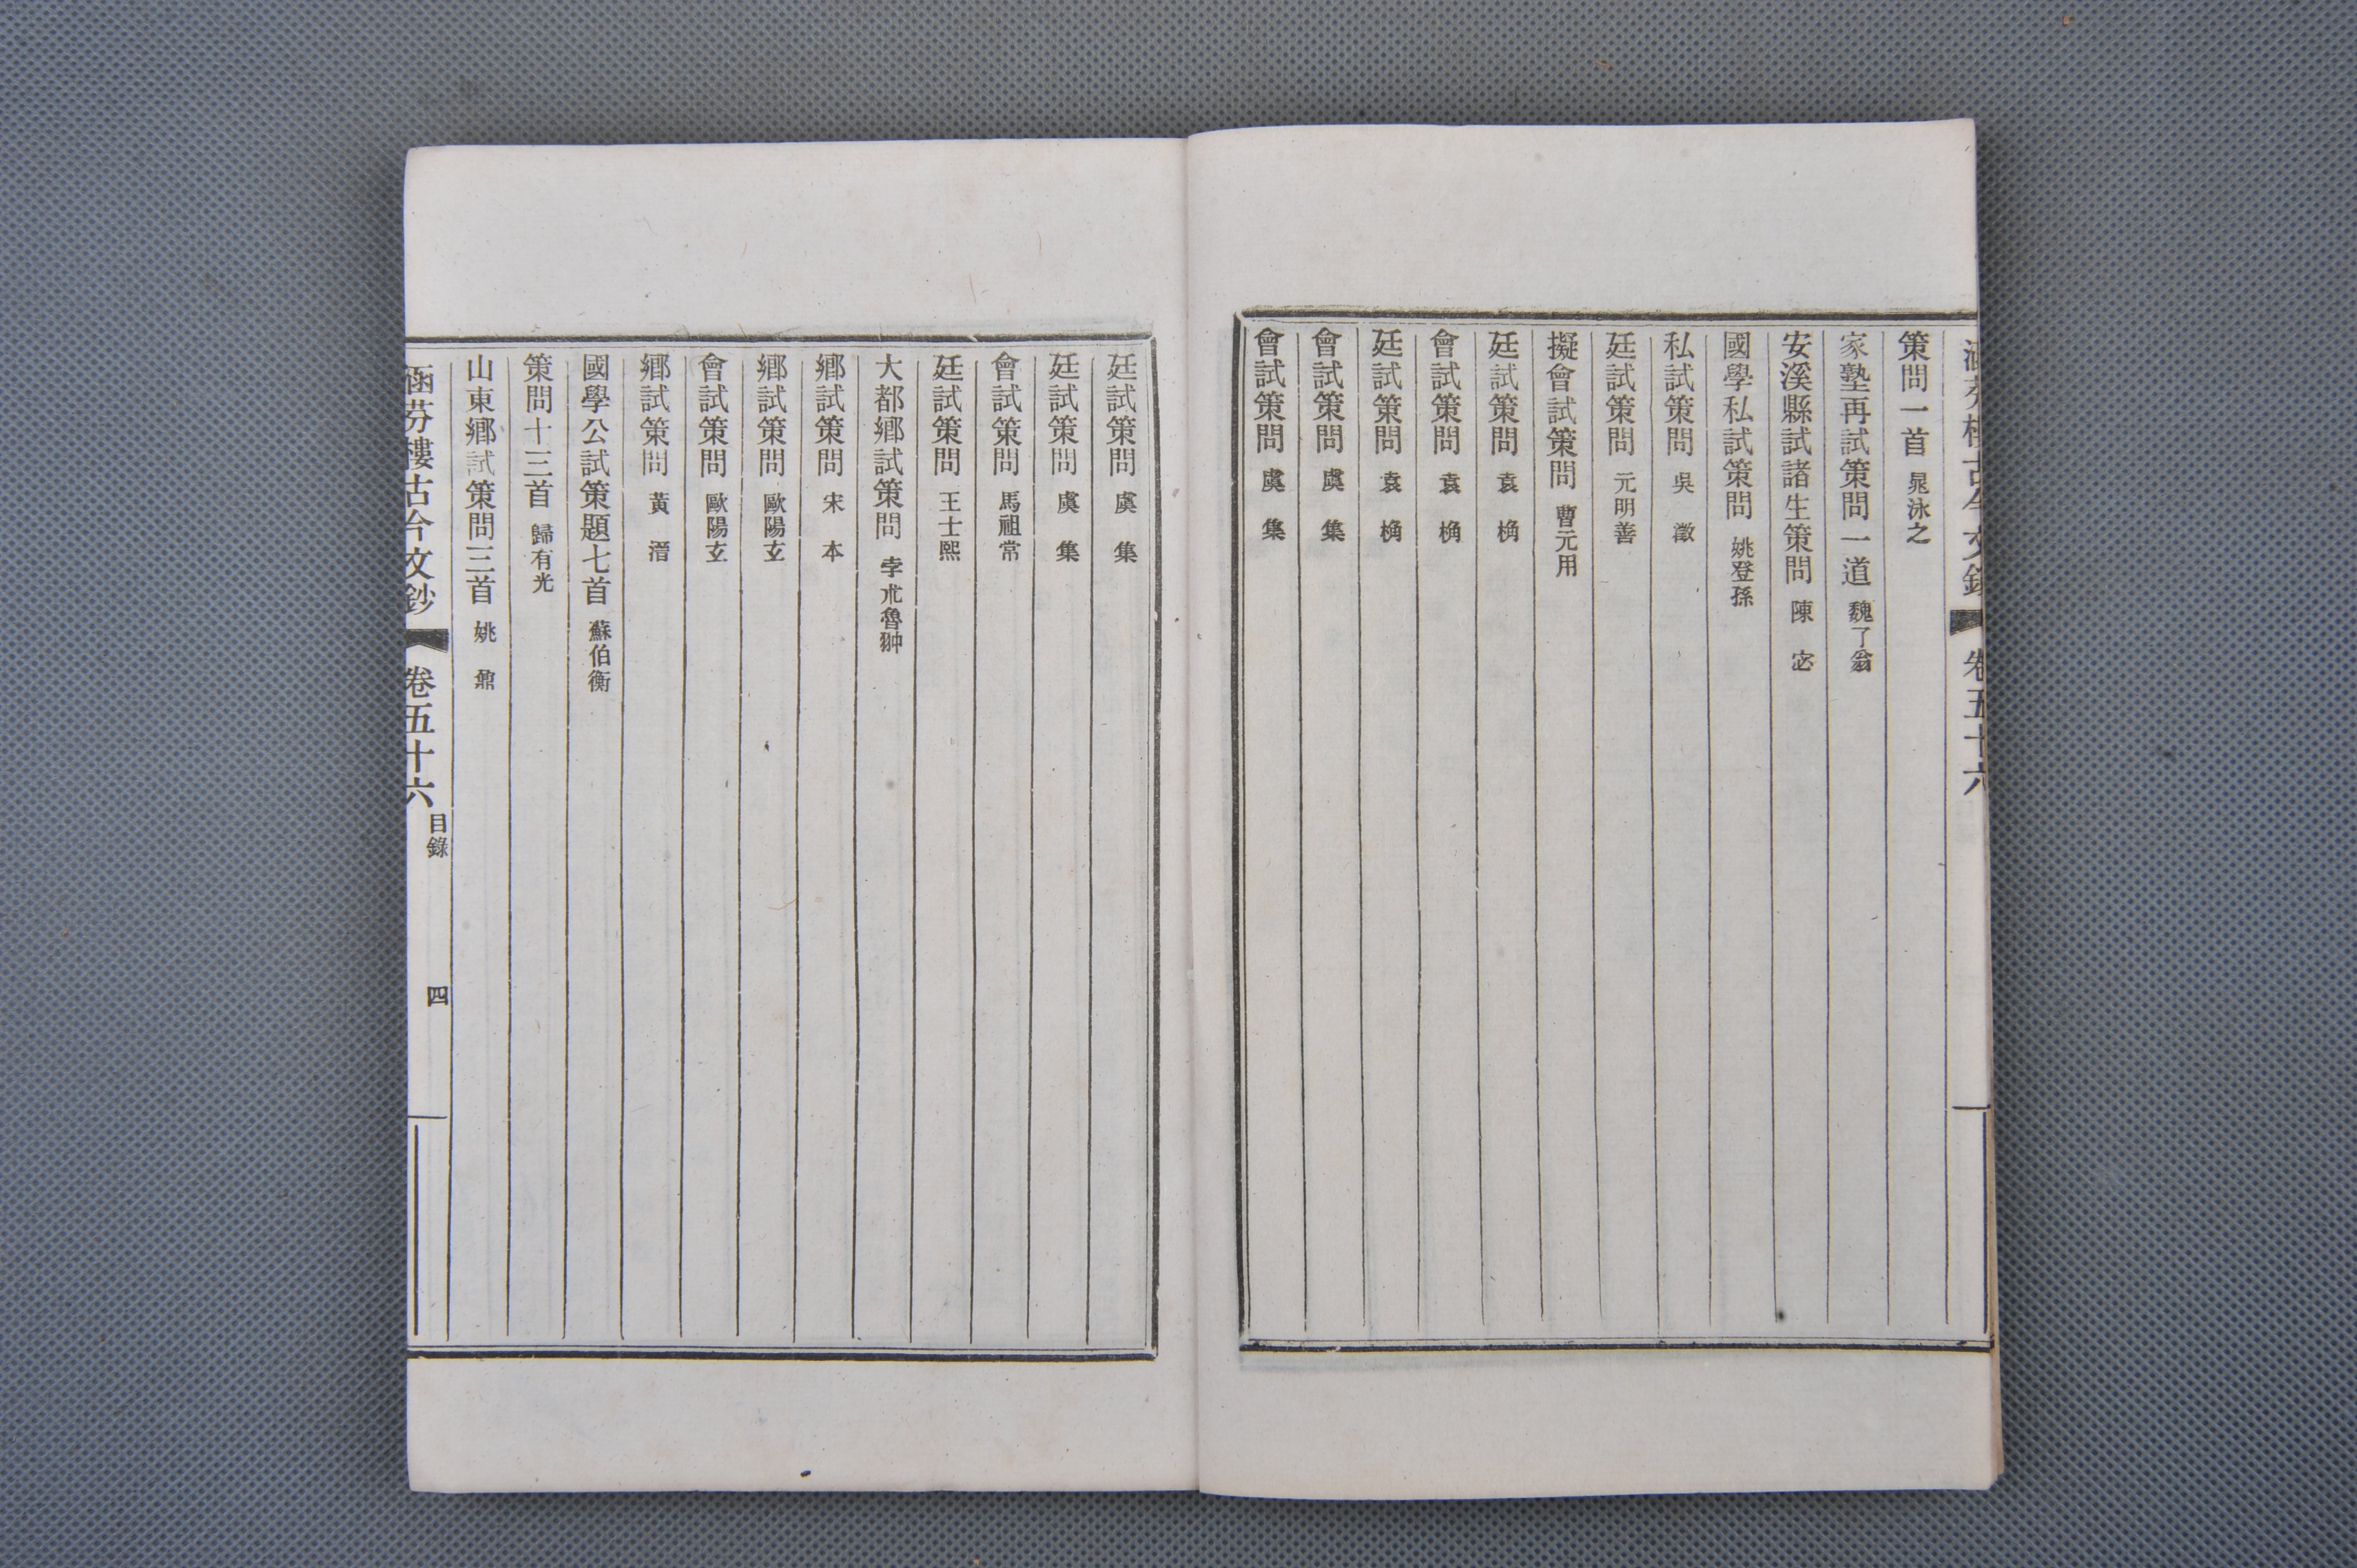 涵芬樓古今文鈔 卷五十六
策問一首 晁泳之
家塾再試策問一道 魏了翁
安溪縣試諸生策問 陳宓
國學私試策問 姚登孫
私試策問 吳澂
廷試策問 元明善
擬會試策問 曹元用
廷試策問 袁桷
會試策問 袁桷
廷試策問 袁桷
會試策問 虞集
會試策問 虞集
廷試策問 虞集
廷試策問 虞集
會試策問 馬祖常
廷試策問 王士熙
大都鄉試策問 孛朮魯翀
鄉試策問 宋本
鄉試策問 歐陽玄
會試策問 歐陽玄
鄉試策問 黃溍
國學公試策題七首 蘇伯衡
策問十三首 歸有光
山東鄉試策問三首 姚鼐
涵芬樓古今文鈔 卷五十六 目錄 四